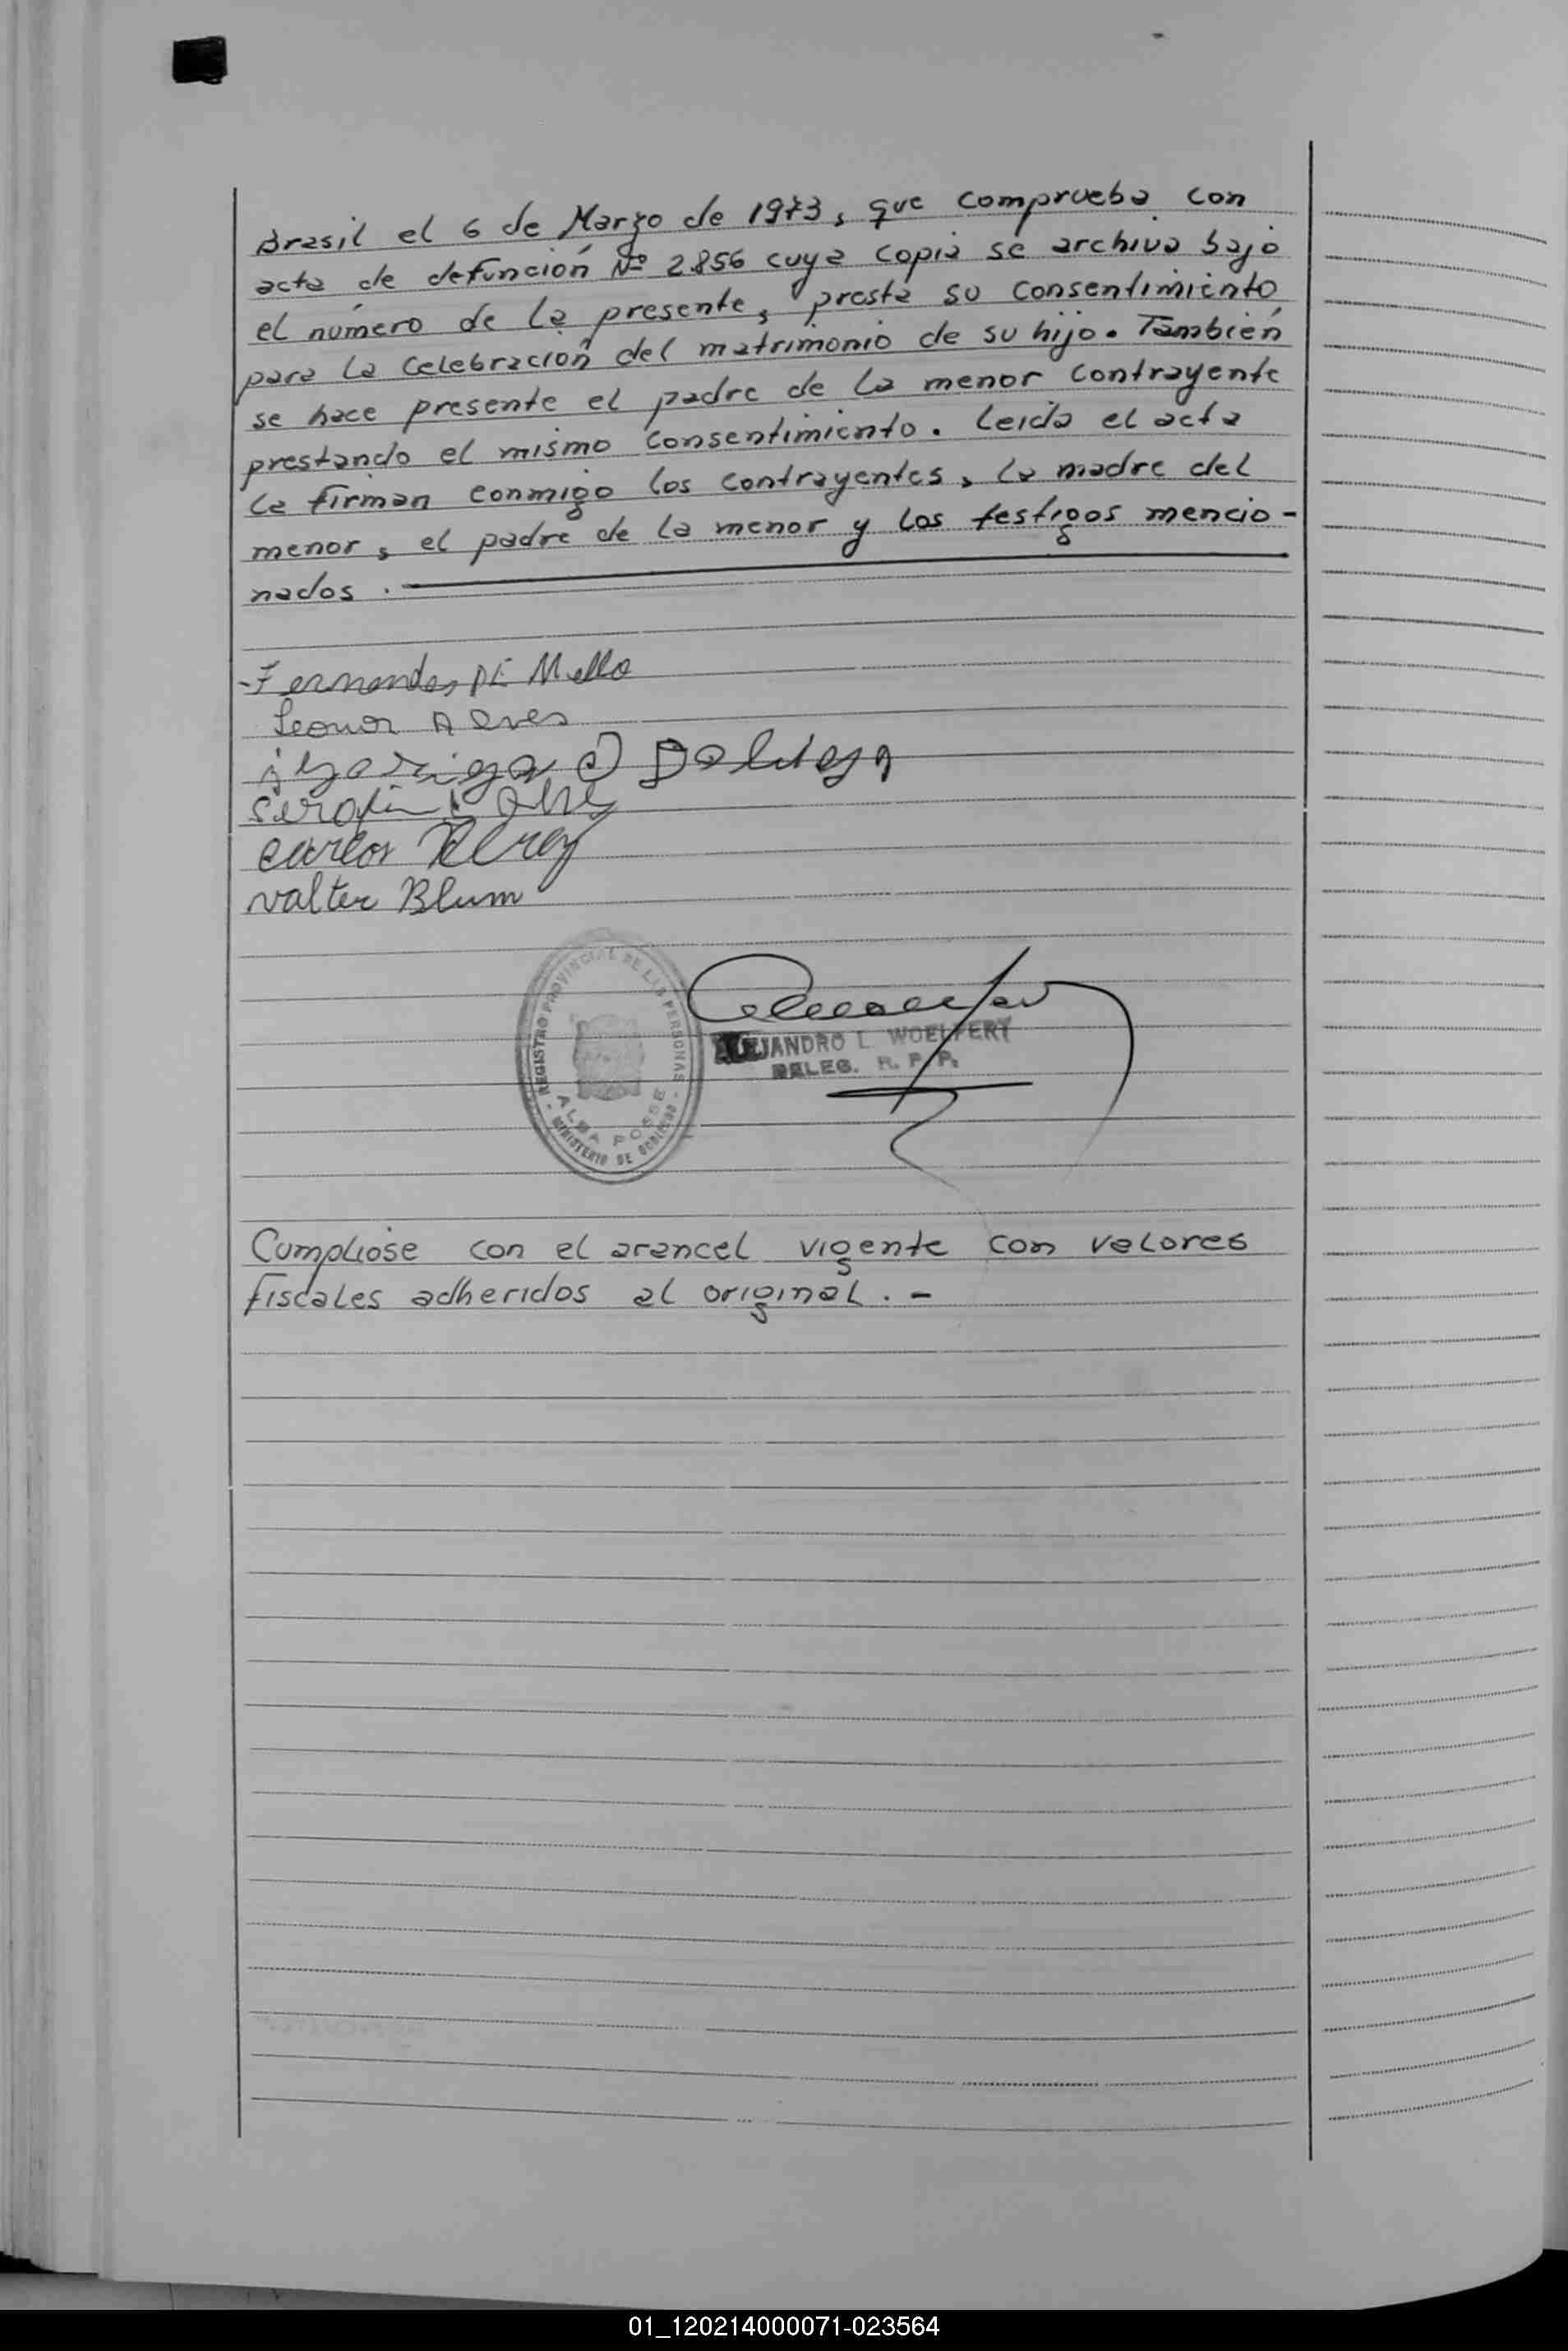 Brasil el 6 de Marzo de 1973, que comprueba con
acta de defunción Nº 2856 cuya copia se archiva bajo
el número de la presente, presta su consentimiento
para la celebración del matrimonio de su hijo. También
se hace presente el padre de la menor contrayente
prestando el mismo consentimiento. Leida el acta
la firman conmigo los contrayentes, la madre del
menor, el padre de la menor y los testigos mencio-
nados.
-Fernandes DE Mello
Leonor Alves
Serafin Alves
Carlos
Valter Blum
REGISTRO PROVINCIAL DE LAS PERSONAS
ALBA POSSE
MINISTERIO DE GOBIERNO
ALEJANDRO L. WOELFERT
DELEG. R. P. P.
Cumpliose con el arancel vigente con valores
fiscales adheridos al original.-
01_120214000071-023564